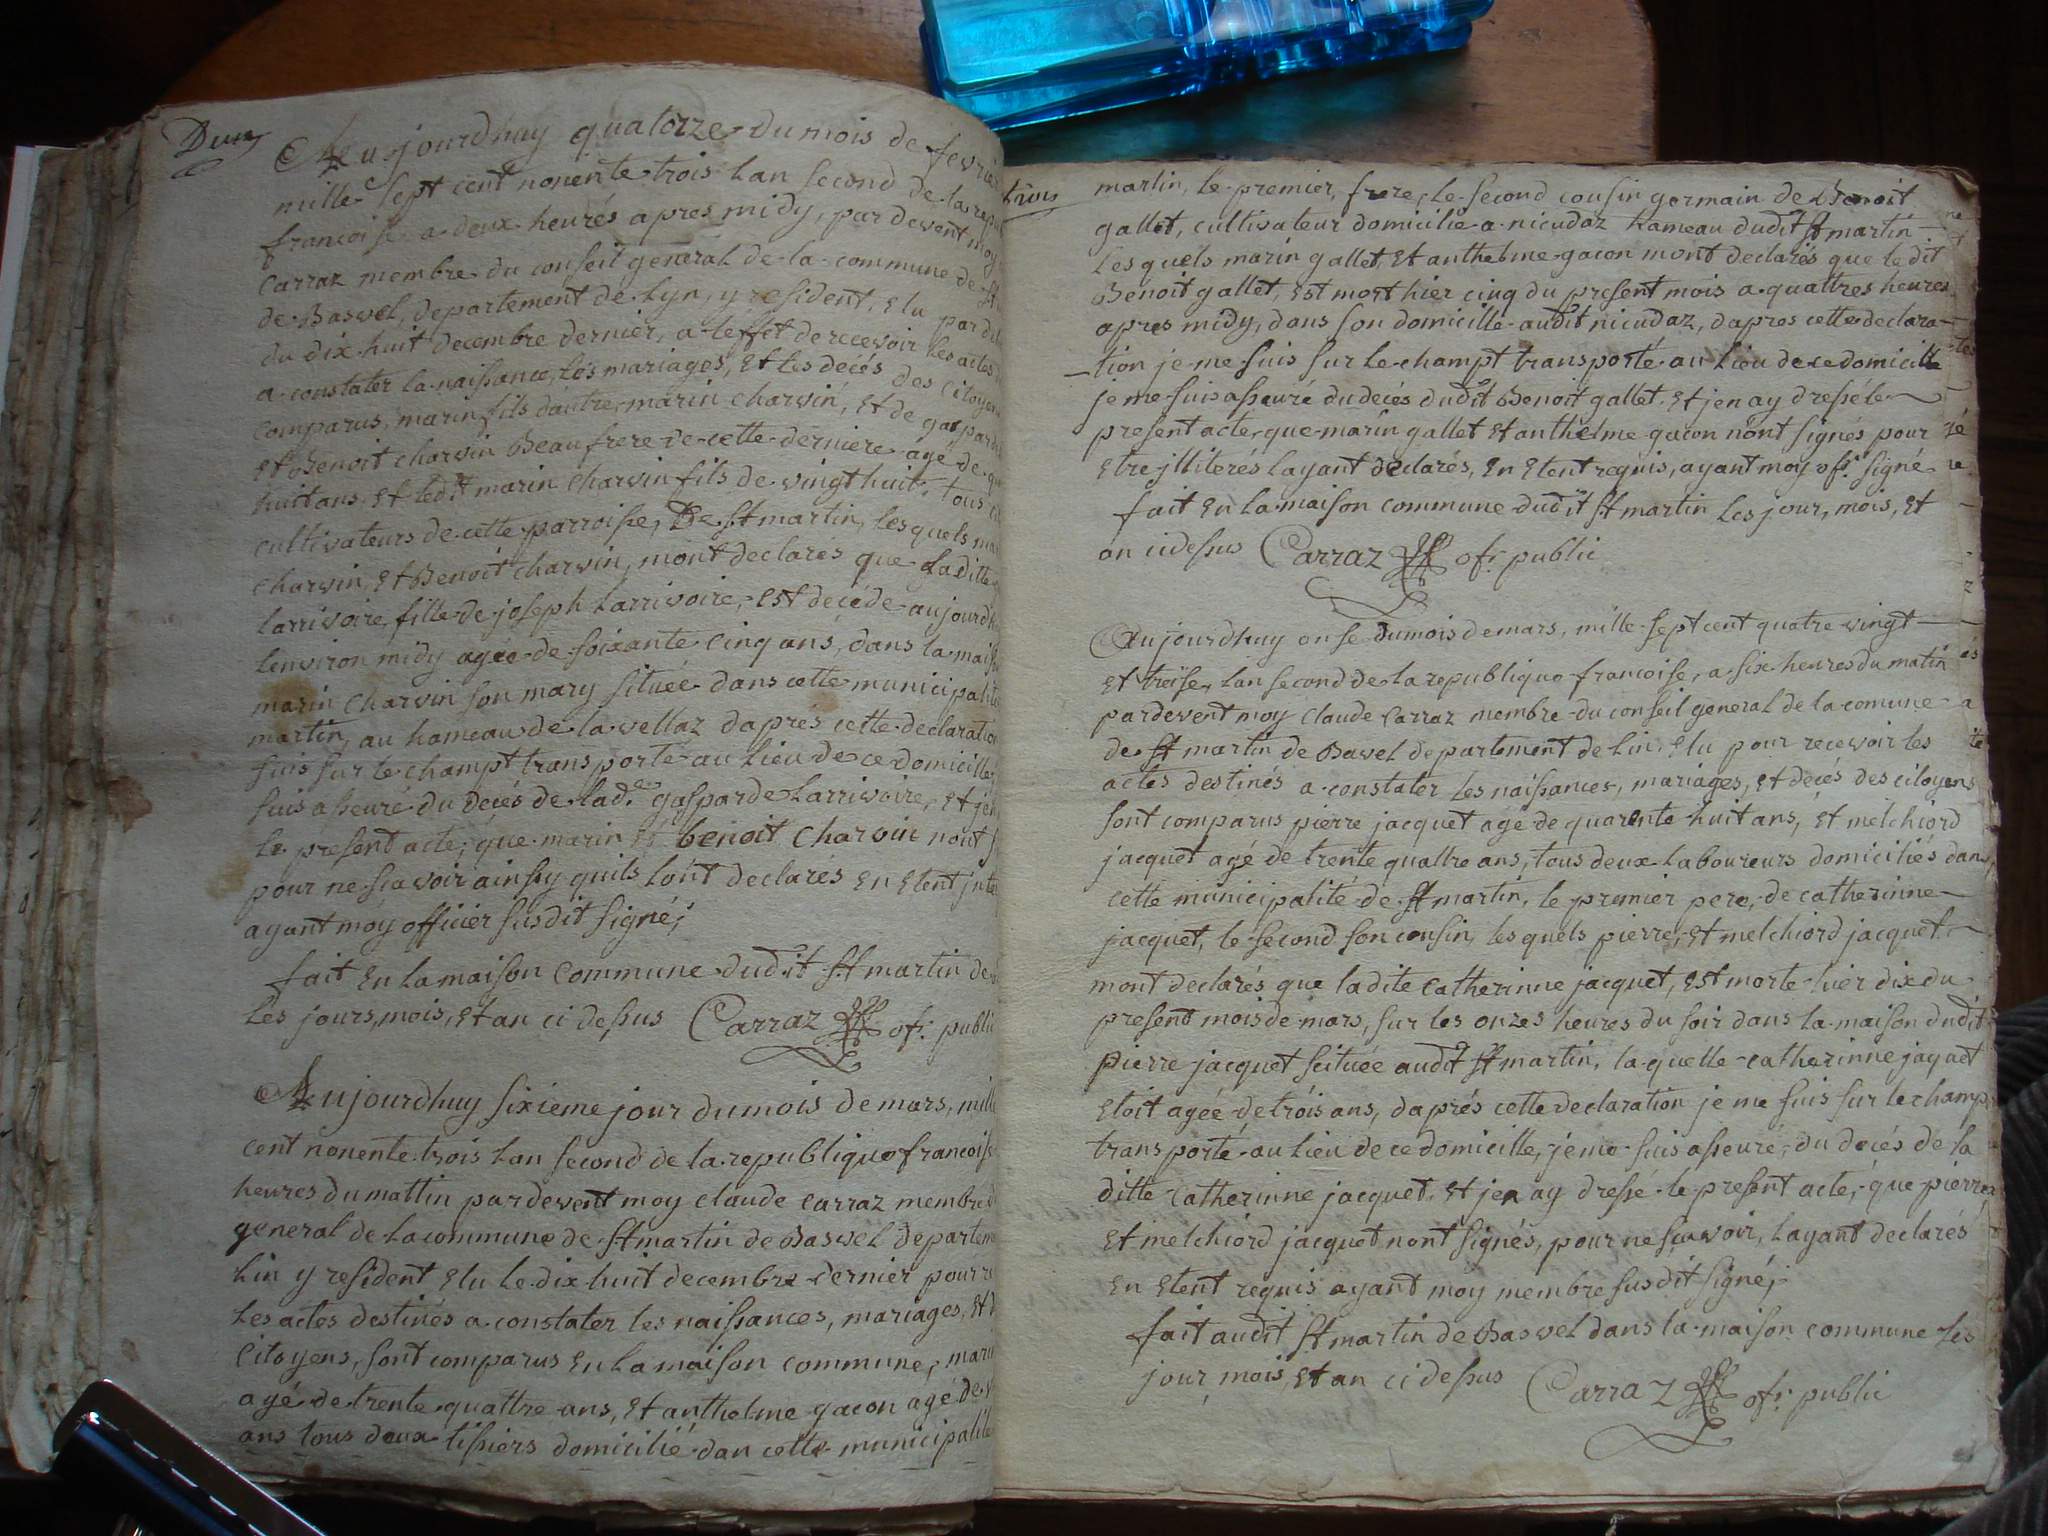 Deux
Aujourdhuy quatorze du mois de fevrier
mille sept cent nonente trois lan second de la repu
francoise a deux heurés apres midy, pardevent moy
Carraz membre du conseil general de la commune de St
de Bavvel, departement de Lyn, y resident, Elu par
du dix huit decembre dernier, a leffet de recevoir les actes
a constater la naissance, lés mariages, Et les décés des citoyens
comparus, marin fils dautre marin charvin, Et de gasparde
Et Benoit charvin Beaufrere de cette derniere agé de
huit ans Et ledit marin charvin fils de vingt huit, tous
cultivateurs de cette parroisse, De St martin, lesquels ma
charvin, Et Benoit charvin, mont declarés que Laditte
larrivoire fille de joseph Larrivoire, Est decédé aujourdh
lenviron midy agée de soixante Cinq ans, dans la mais
marin charvin son mary située dans cette municipalité
martin, au hameau de la vellaz daprés cette declaration
suis sur le champt transporté au Lieu de ce domicille,
suis asseuré du decés de lad.e gasparde Larrivoire, Et jen
le présent acte, que marin Et benoit Charvin nont s
pour ne scavoir ainssy quils lont declarés En Etent
ayant moy officier susdit signé;
fait En la maison Commune dudit St martin de
les jours, mois, Et an ci dessus Carraz ofr. public
Aujourdhuy sixieme jour du mois de mars, mille
cent nonente trois Lan second de la republique francoise
heures du mattin pardevent moy claude Carraz membre d
general de la commune de St martin de Bavvel departem
Lin y resident Elu le dix huit decembre dernier pour re
Les actes destinés a constater les naissances, mariages, Et d
Citoyens, sont comparus En La maison commune, marin
agé de trente quattre ans, Et anthelme gacon agé de v
ans tous deux tissiers domicilié dan cette municipalité
trois
martin, le premier, frere, le second cousin germain de Benoit
gallet, cultivateur domicilié a nicudaz hameau dudit St martin
Lesquels marin gallet, Et anthelme gacon mont declarés que ledit
Benoit gallet, Est mort hier cinq du present mois a quattres heures
apres midy, dans son domicille audit nicudaz, dapres cette declara-
-tion je me suis sur le champt transporté au Lieu de ce domicille
je me suis asseuré du decés dudit Benoit gallet Et jen ay dressé le
present acte que marin gallet Et anthelme gacon nont signés pour
Etre jlliterés layant declarés, En Etent requis, ayant moy ofr. signé
fait En la maison commune dudit St martin Les jour, mois, Et
an ci dessus Carraz ofr. public
Aujourdhuy onse du mois de mars, mille sept cent quatre vingt
Et treise, lan second de la republique francoise, a six heures du matin
pardevent moy Claude Carraz membre du conseil general de la comune
de St martin de Bavvel departement de Lin, Elu pour recevoir les
actes destinés a constater Les naissances, mariages, Et decés des citoyens
sont comparus pierre jacquet agé de quarente huit ans, Et melchiord
jacquet agé de trente quattre ans, tous deux Laboureurs domiciliés dans
cette municipalité de St martin, le premier pere, de catherinne
jacquet, le second son cousin, lesquels pierre, Et melchiord jacquet
mont declarés que ladite Catherinne jacquet, Est morte hier dix du
present mois de mars, sur les onzes heures du soir dans la maison dudit
pierre jacquet scituée audit St martin, la quelle catherinne jaquet
Etoit agée de trois ans, daprés cette declaration je me suis sur le champt
transporté au Lieu de ce domicille, je me suis asseuré, du decés de la
ditte catherinne jacquet, Et jen ay dressé le present acté, que pierre
Et melchiord jacquet nont signés, pour ne scavoir, Layant declarés
En Etent requis ayant moy membre susdit signé;
fait audit St martin de Bavvel dans la maison commune les
jour, mois Et an ci dessus Carraz ofr. public